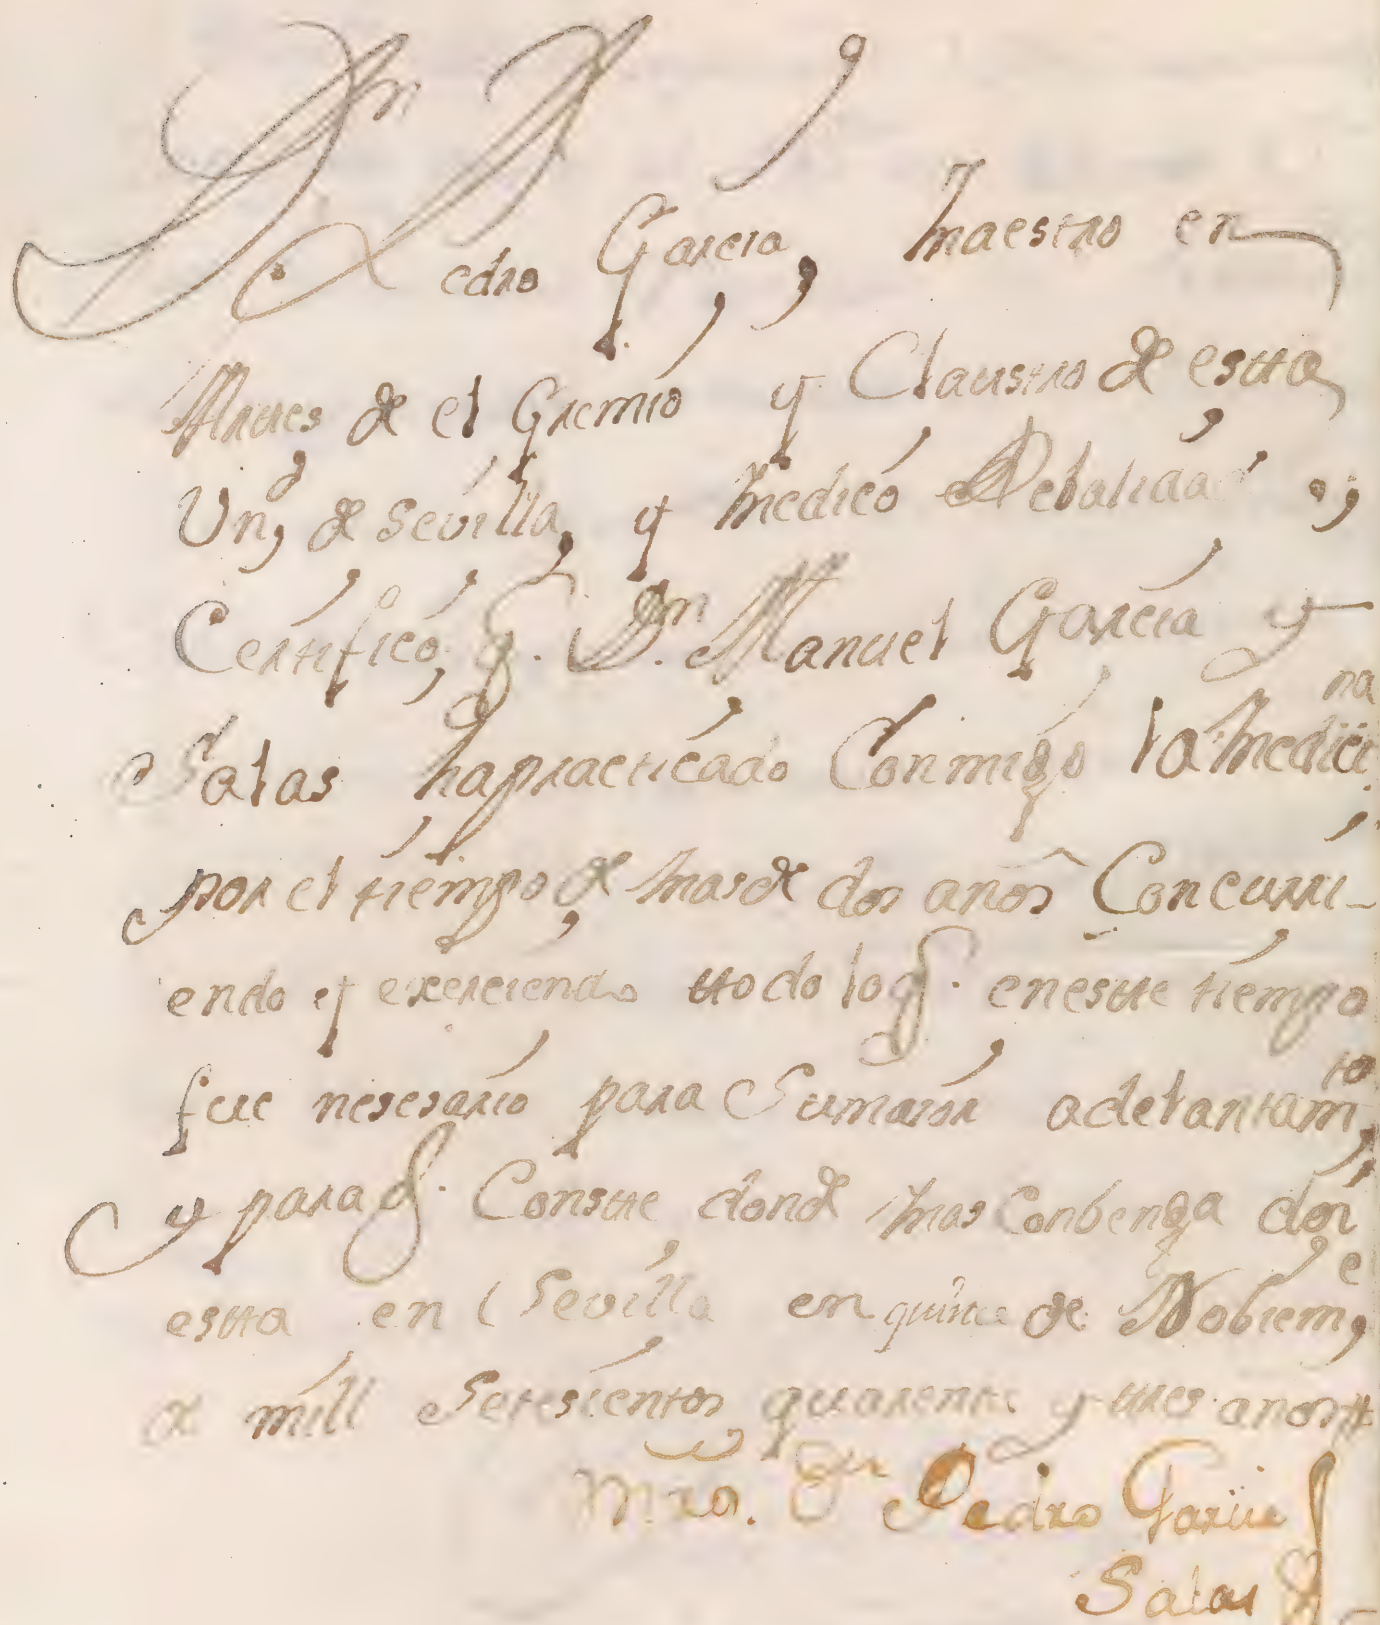 Dn Pedro Garcia, Maestro en
Arttes de el Gremio y Claustro de estta
Und, de Sevilla, y Medico Rebalidado,
Certifico, q. Dn Manuel Garcia y
Salas ha practicado Conmigo la Medicina
por el tiempo de mas de dos años Concurri-
endo y exerciendo ttodo lo q. en estte tiempo
fue nesesario para Su maior adelantamto,
y para q. Constte donde mas Conbenga doi
estta en Sevilla en quince de Nobieme,
de mill Setesientos quarenta y ttres anos
Mro. Dn Pedro Garcia
Salas